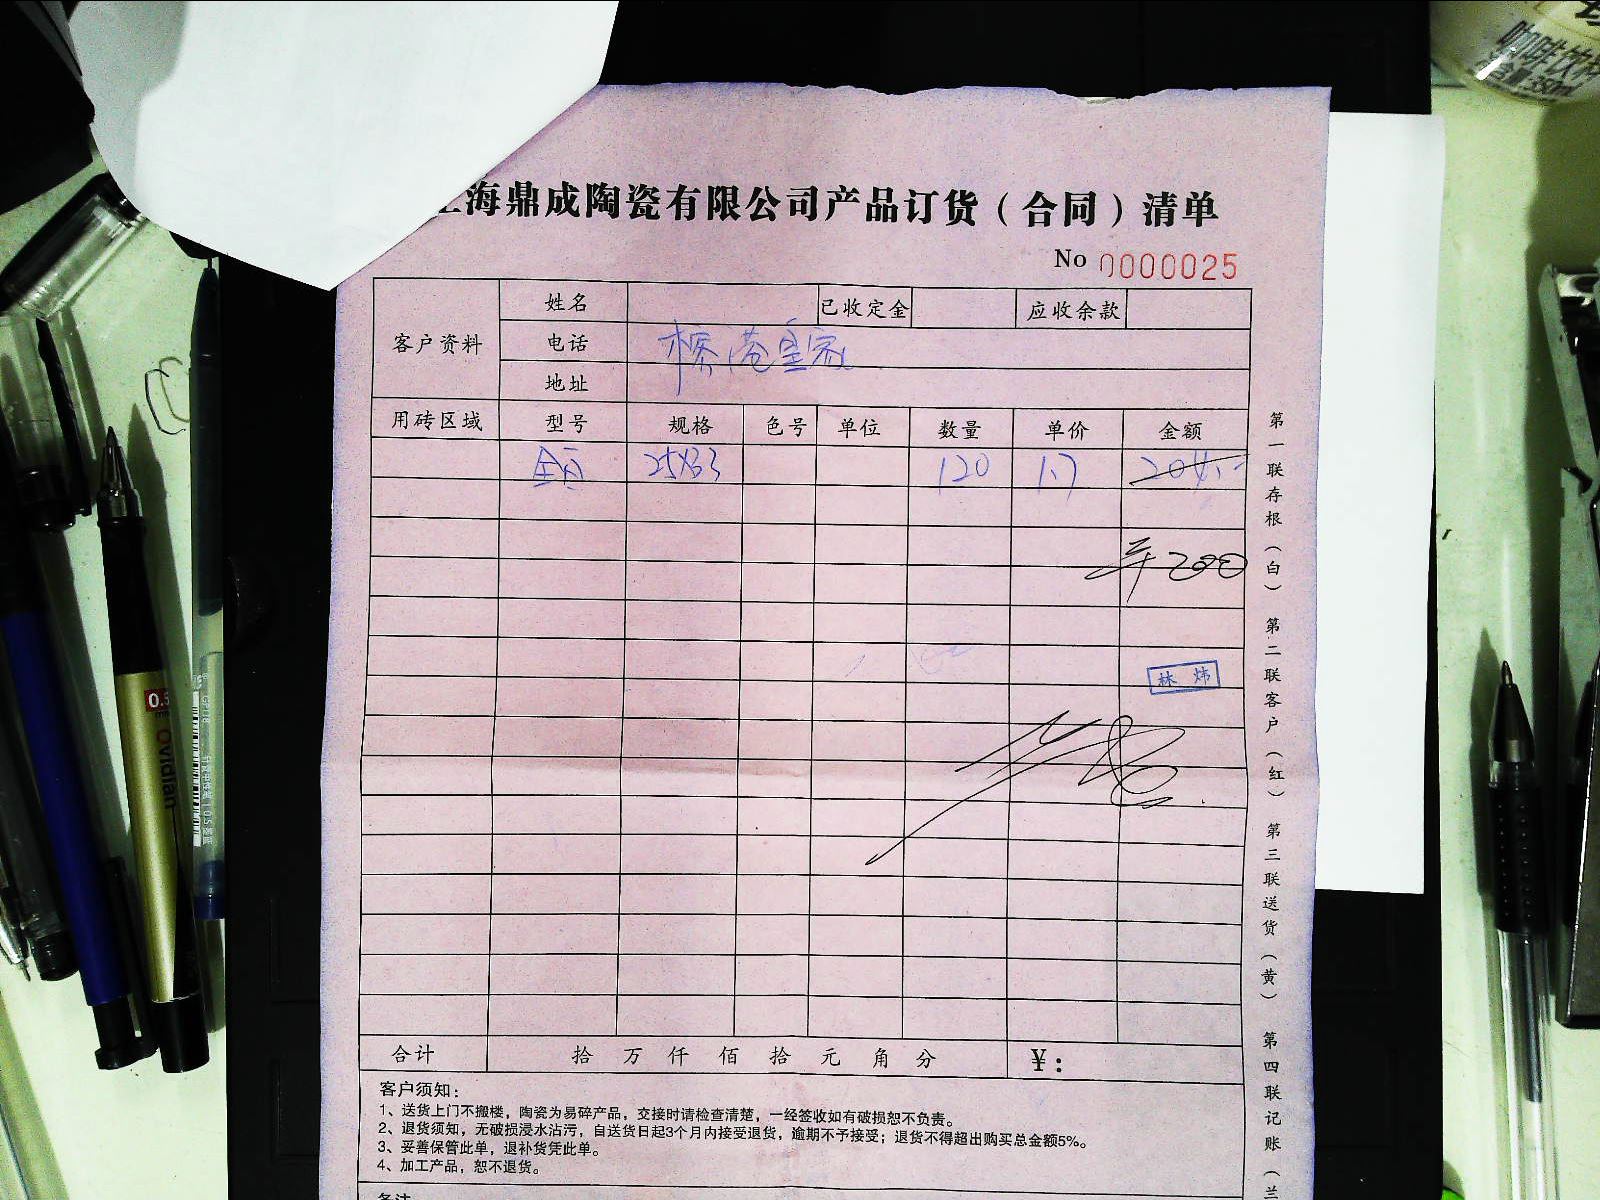 咖啡饮料
海鼎成陶瓷有限公司产品订货（合同）清单
No 0000025
客户资料 姓名 已收定金 应收余款
电话
地址
用砖区域 型号 规格 色号 单位 数量 单价 金额
25×33 120 1.7 204.-
200
林炜
合计 拾 万 仟 佰 拾 元 角 分 ￥：
客户须知：
1、送货上门不搬楼，陶瓷为易碎产品，交接时请检查清楚，一经签收如有破损恕不负责。
2、退货须知，无破损浸水沾污，自送货日起3个月内接受退货，逾期不予接受；退货不得超出购买总金额5%。
3、妥善保管此单，退补货凭此单。
4、加工产品，恕不退货。
第一联存根（白） 第二联客户（红） 第三联送货（黄） 第四联记账（兰
0.5
Ovidian
GP118